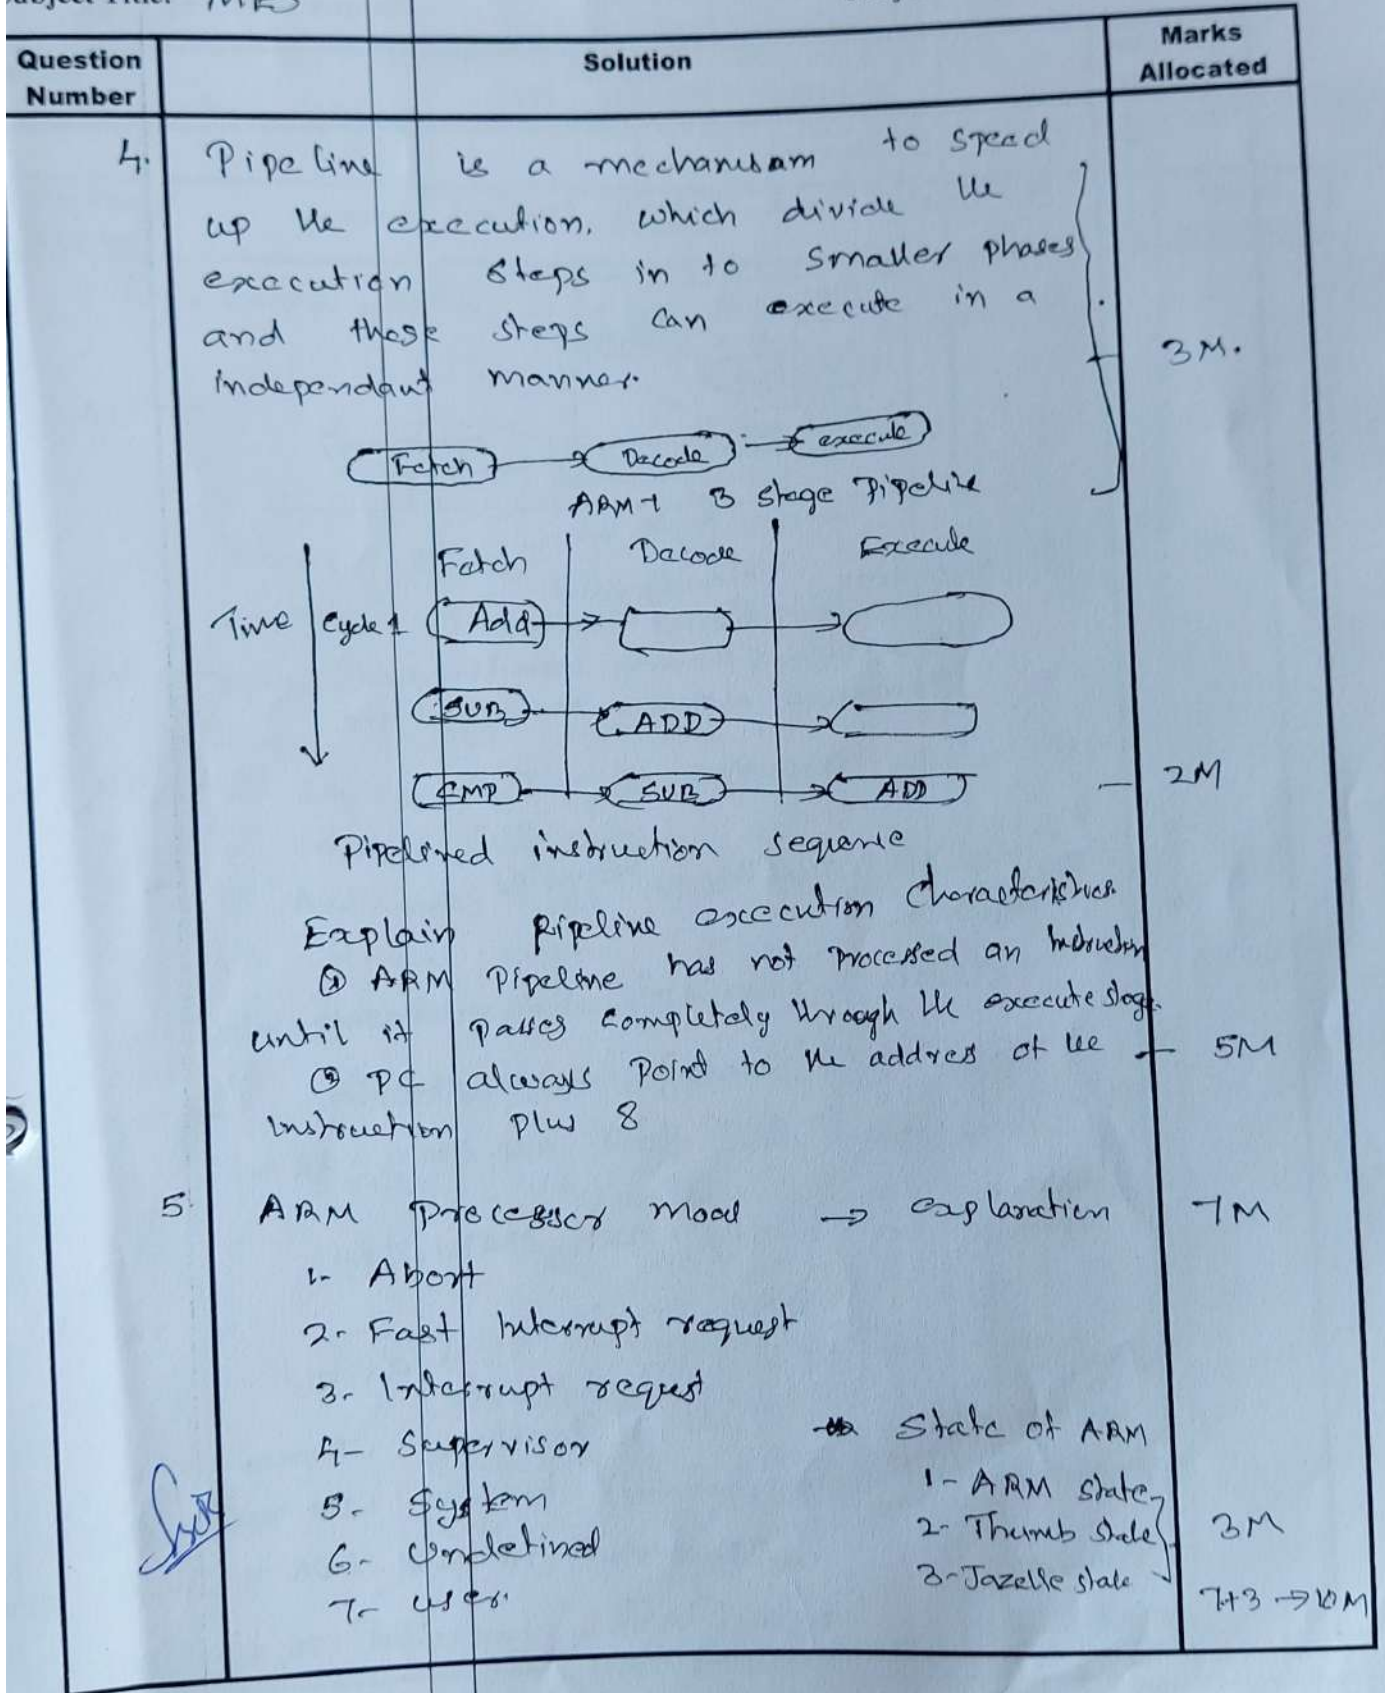 MES
Question Number
Solution
Marks Allocated
4. Pipe line is a mechanisam to spead
up the execution, which divide the
execution steps in to smaller phases
and those steps can execute in a
independant manner.
3M.
Fetch Decode execute
ARM7 3 stage Pipeline
Fetch Decode Execute
Time Cycle 1 Add
SUB ADD
CMP SUB ADD
2M
Pipelined instruction sequence
Explain Pipeline execution Characteristics.
① ARM Pipeline has not processed an Instruction
until it passes completely through the execute stage.
② PC always Point to the address of the
instruction plus 8
5M
5. ARM Processor mood → explanation 7M
1- Abort
2- Fast Interrupt request
3- Interrupt request
4- Supervisor
5- System
6- Undefined
7- user.
State of ARM
1- ARM state
2- Thumb state
3- Jazelle state
3M
7+3 → 10M